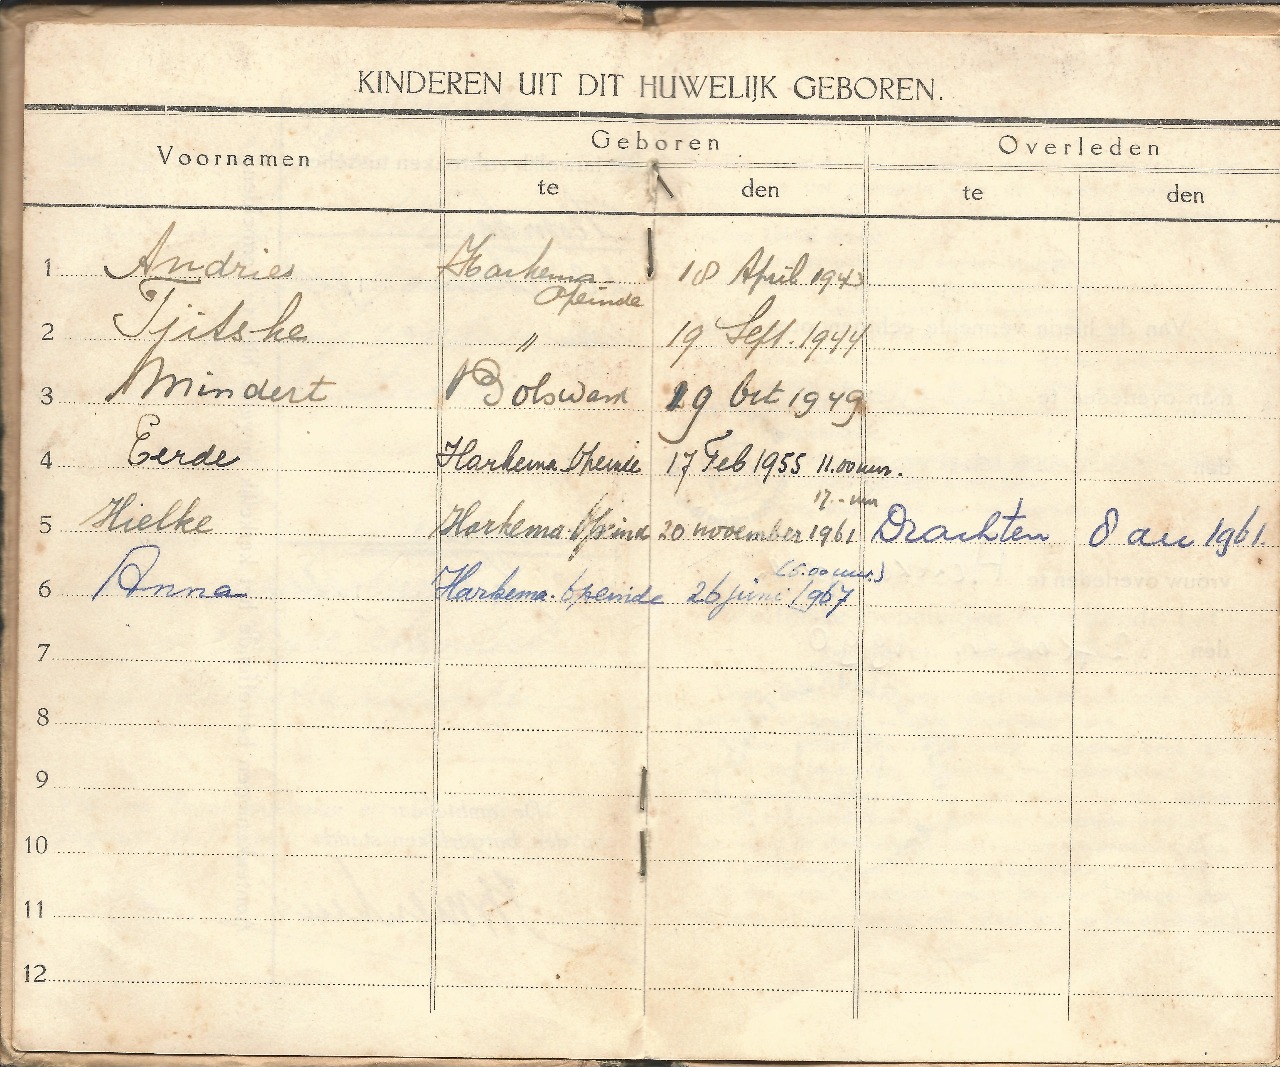 KINDEREN UIT DIT HUWELIJK GEBOREN.
Voornamen Geboren Overleden
te den te den
1 Andries Harkema Opeinde 18 April 1943
2 Tjitske " 19 Sept. 1944
3 Mindert Bolsward 29 Oct 1949
4 Eerde Harkema Opeinde 17 Feb 1955 11.00 uur.
17.- uur
5 Hielke Harkema-Opeind 20 november 1961 Drachten 8 1961.
(6.00 uur.)
6 Anna Harkema-Opeinde 26 juni 1967
7
8
9
10
11
12